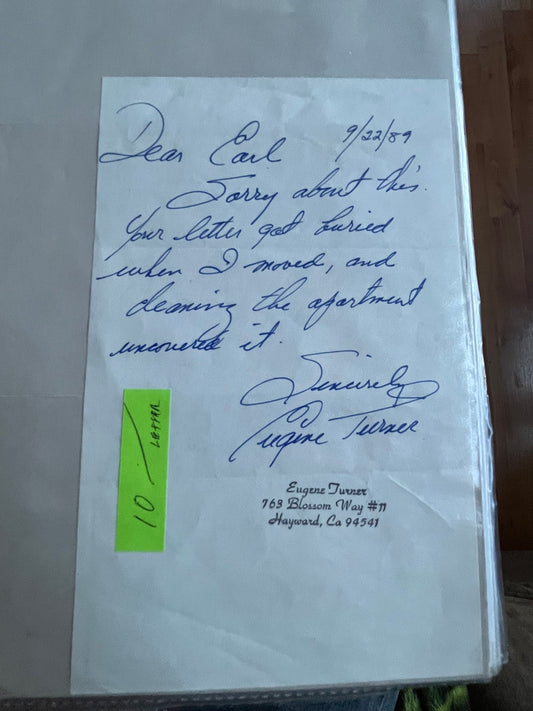 9/22/89
Dear Carl
Sorry about this.
Your letter got buried
when I moved, and
cleaning the apartment
uncovered it.
Sincerely
Eugene Turner
Eugene Turner
763 Blossom Way #11
Hayward, Ca 94541
10 — LETTER